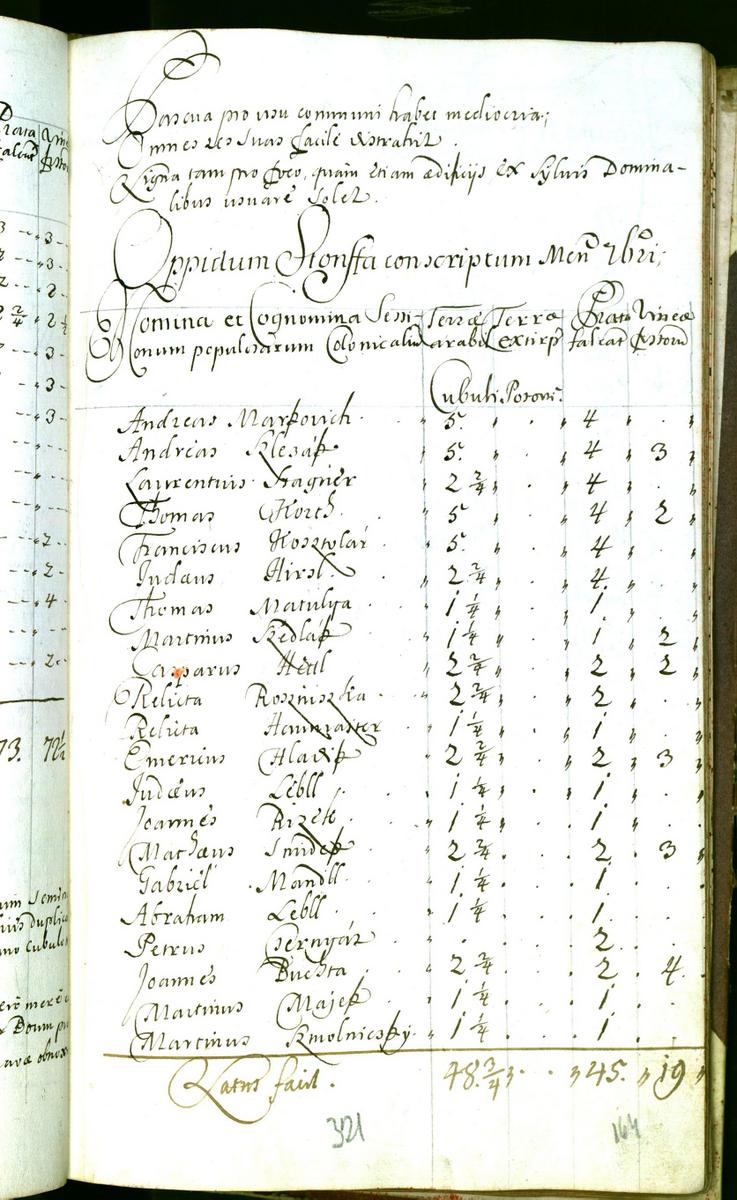 Pascua pro usu communi habet mediocria;
Omnes res suas facile distrahit.
Ligna tam pro foco, quam etiam ædificijs ex Sylvis Domina-
libus usuare solet.
Oppidum conscriptum Men 7bri;
Nomina et Cognomina Sessi- Terræ Terræ Prata Vineæ
onum populosarum Colonicaliu arabil extirp falcat fosson
Cubuli Posonien.
Andreas Markovich 5. 4
Andreas Klesák 5. 4 3
Laurentius Hagner 2 2/4 4
Thomas 5 4 2
Franciscus Kosztolar 5. 4
Judæus Hirsl 2 2/4 4.
Thomas Matulya 1 1/4 1.
Martinus Sedlák 1 1/4 1 2
Casparus 2 2/4 2 2
Relicta Roszniszka 2 2/4 2
Relicta 1 1/4 1
Emericus Hladik 2 2/4 2 3
Judæus Lebll 1 1/4 1
Joannes 1 1/4 1
Mathæus Smidek 2 2/4 2 3
Gabriel Mandll 1 1/4 1
Abraham Lebll 1 1/4 1.
Petrus Csernyár 2
Joannes Buchta 2 2/4 2 4
Martinus Majek 1 1/4 1
Martinus Smolniczky 1 1/4 1
Latus facit. 48. 3/4 45. 19
321 164
3
3
2
2 2/4 2 1/2
3
3
3
2
2
4
2
73. 72 1/2